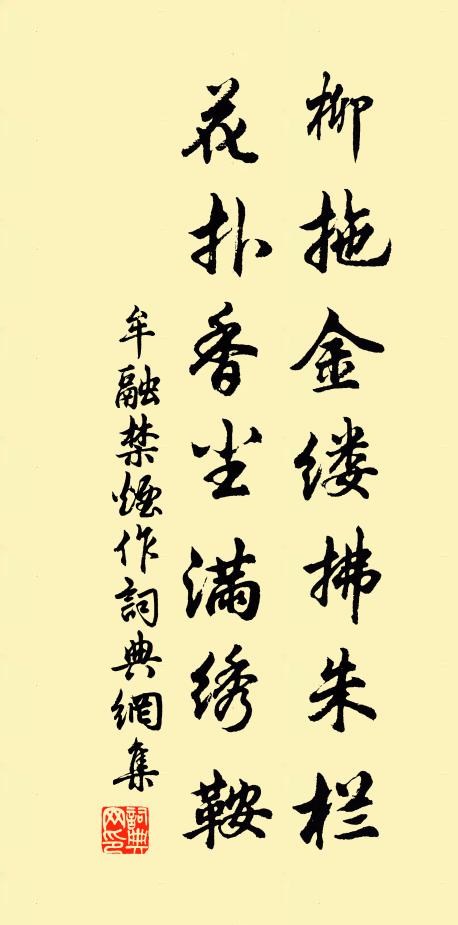 柳拖金缕拂朱栏
花扑香尘满绣鞍
牟融禁烟作詞典網集
詞典
网印